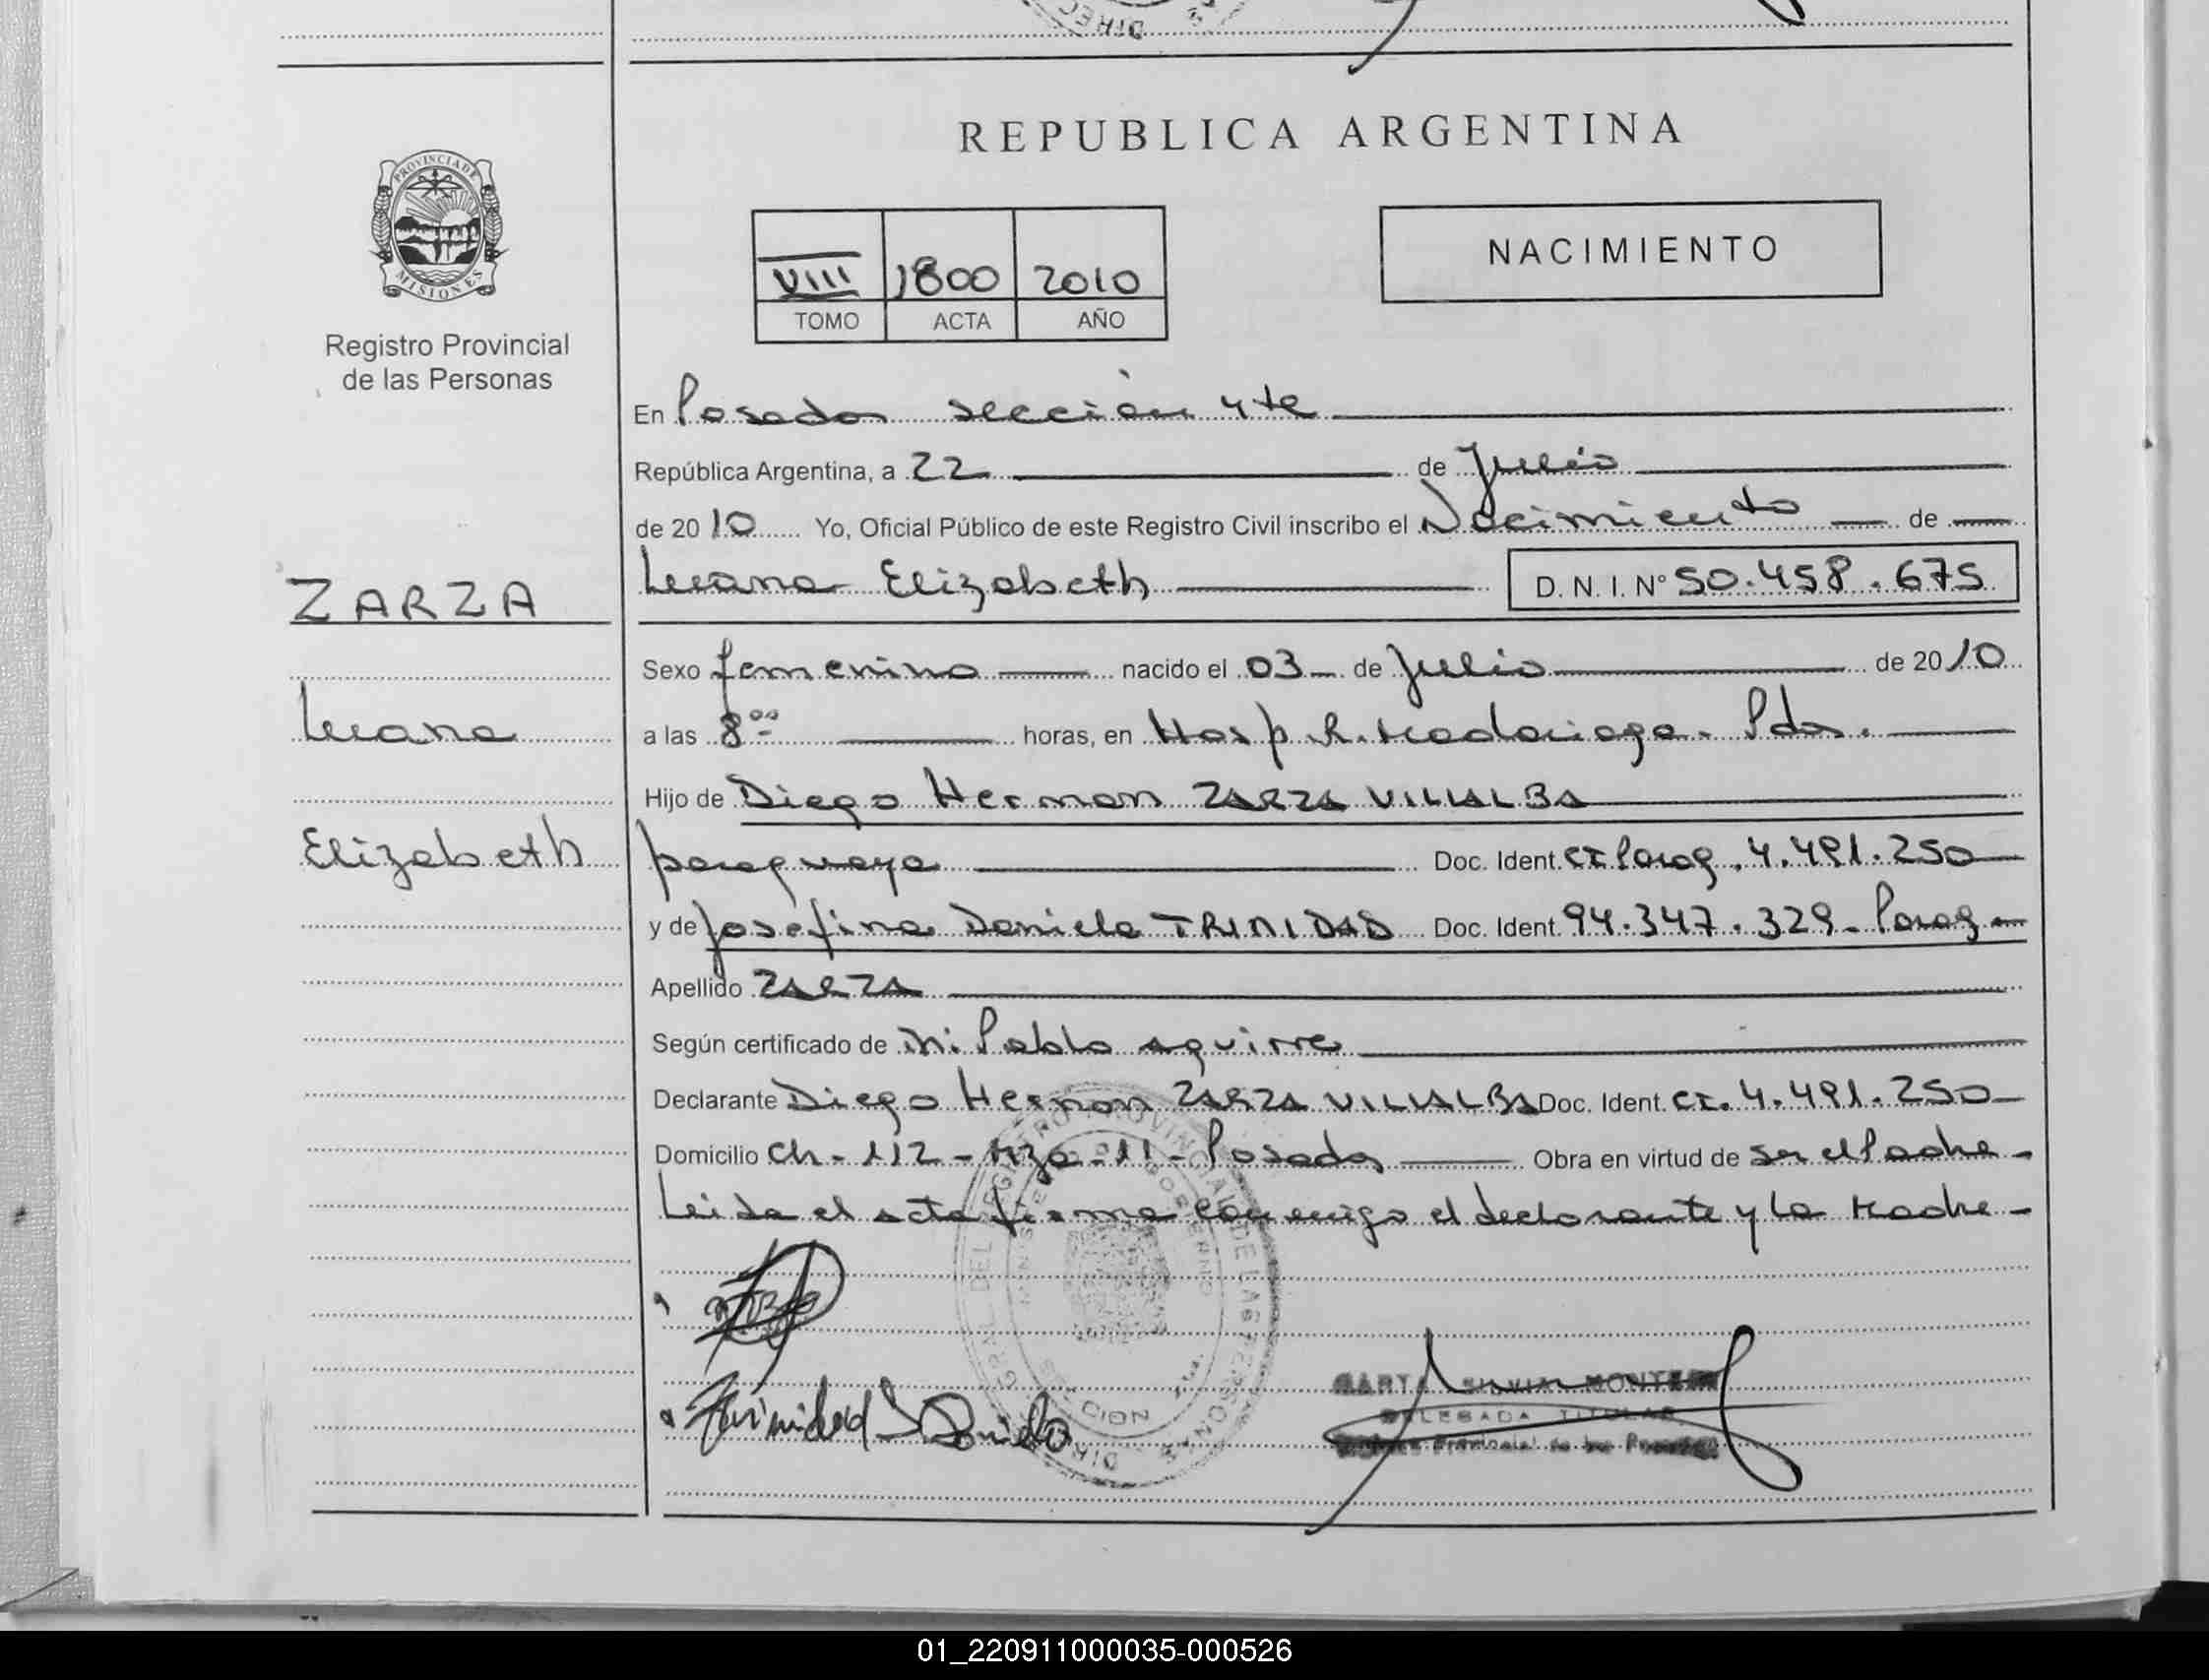 REPUBLICA ARGENTINA
PROVINCIA DE
MISIONES
Registro Provincial
de las Personas
NACIMIENTO
VIII 1800 2010
TOMO ACTA AÑO
En Posadas sección 4te
República Argentina, a 22 de Julio
de 2010 Yo, Oficial Público de este Registro Civil inscribo el Nacimiento de
Luana Elizabeth D. N. I. Nº 50.458.675
ZARZA
Luana
Elizabeth
Sexo femenino nacido el 03 de Julio de 2010
a las 8:00 horas, en Hosp R. Madariaga. Pdas.
Hijo de Diego Hernan ZARZA VILLALBA
paraguaya Doc. Ident. CI Parag. 4.491.250
y de Josefina Daniela TRINIDAD Doc. Ident. 94.347.329 - Parag
Apellido ZARZA
Según certificado de Pablo Aguirre
Declarante Diego Hernan ZARZA VILLALBA Doc. Ident. CI. 4.491.250
Domicilio Ch - 112 - Mza - 11 - Posadas Obra en virtud de ser el Padre -
Leida el acta firma conmigo el declarante y la Madre -
Trinidad J Daniela
DELEGADA TITULAR
01_220911000035-000526